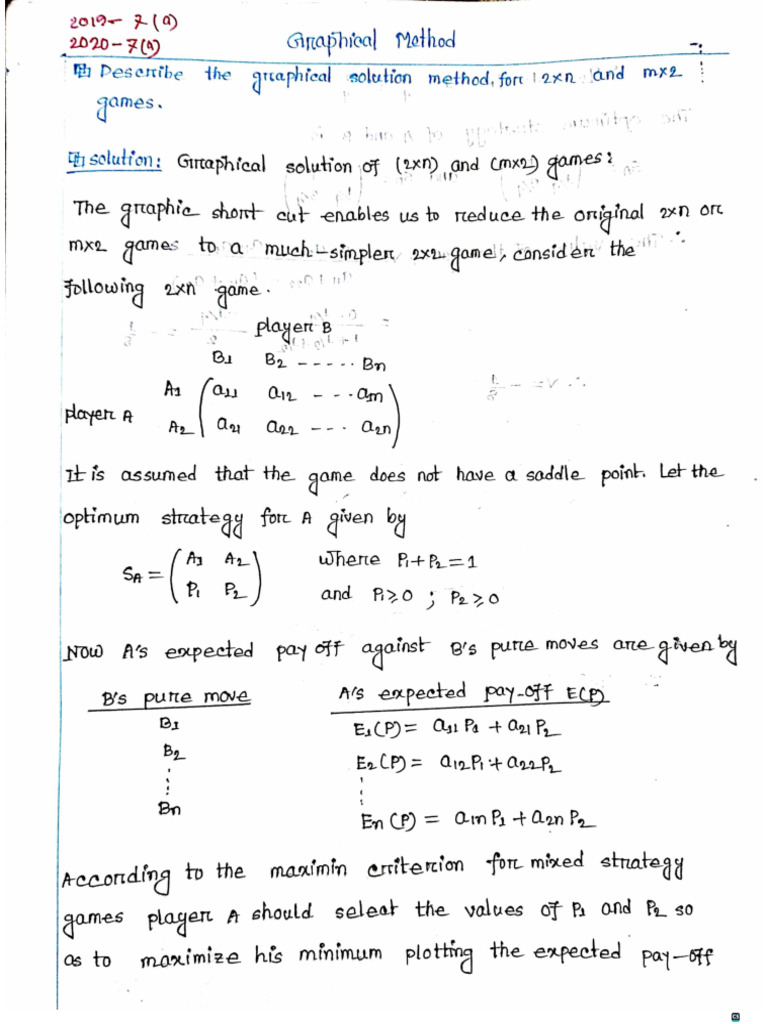 2019- 7(a)
2020-7(a)
Graphical Method
Describe the graphical solution method, for 2xn and mx2
games.
solution: Graphical solution of (2xn) and (mx2) games:
The graphic short cut enables us to reduce the original 2xn or
mx2 games to a much-simpler 2x2 game, consider the
following 2xn game.
player B
B1 B2 ----- Bn
A1 a11 a12 - --- a1n
player A
A2 a21 a22 --- a2n
It is assumed that the game does not have a saddle point. Let the
optimum strategy for A given by
SA = (A1 A2 where P1+P2=1
P1 P2) and P1≥0 ; P2≥0
Now A's expected pay off against B's pure moves are given by
B's pure move A's expected pay-off E(P)
B1 E1(P) = a11 P1 + a21 P2
B2 E2(P) = a12P1 + a22P2
Bn En(P) = a1n P1 + a2n P2
According to the maximin criterion for mixed strategy
games player A should select the values of P1 and P2 so
as to maximize his minimum plotting the expected pay-off
CS